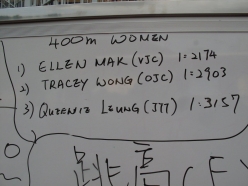 400m WOMEN
1) ELLEN MAK (VJC) 1:2174
2) TRACEY WONG (OJC) 1:2903
3) QUEENIE LEUNG (J77) 1:3157
跳高(F)